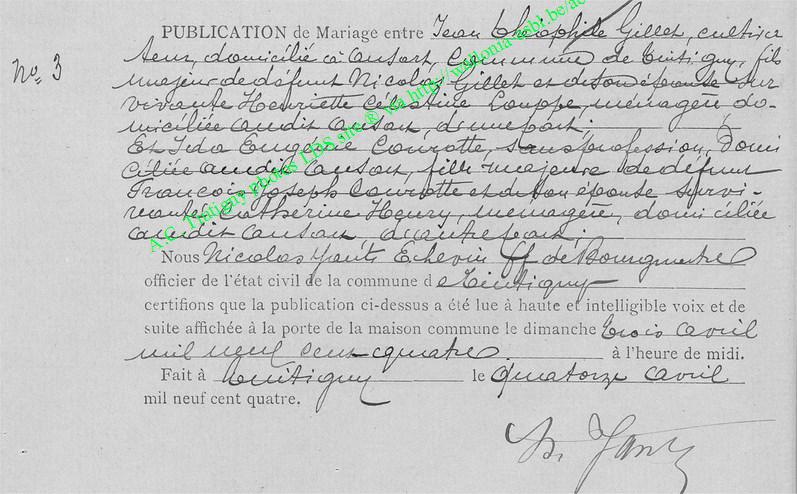 PUBLICATION de Mariage entre Jean Théophile Gillet, cultiva
No 3
teur, domicilié à Ansart, Commune de Tintigny, fils
majeur de défunt Nicolas Gillet et de son épouse sur
vivante Henriette Célestine Louppe, ménagère do-
miciliée audit Ansart, d'une part;
Et Ida Eugénie Courotte, sans profession, domi
ciliée audit Ansart, fille majeure de défunt
François Joseph Courotte et de son épouse survi-
vante Catherine Henry, ménagère, domiciliée
audit Ansart d'autre part;
Nous Nicolas Echevin ff de Bourgmestre
officier de l'état civil de la commune de Tintigny
certifions que la publication ci-dessus a été lue à haute et intelligible voix et de
suite affichée à la porte de la maison commune le dimanche trois avril
mil neuf cent quatre. à l'heure de midi.
Fait à Tintigny le quatorze avril
mil neuf cent quatre.
A.C. Tintigny photos LDS site ® via http://wallonia-asbl.be/ac